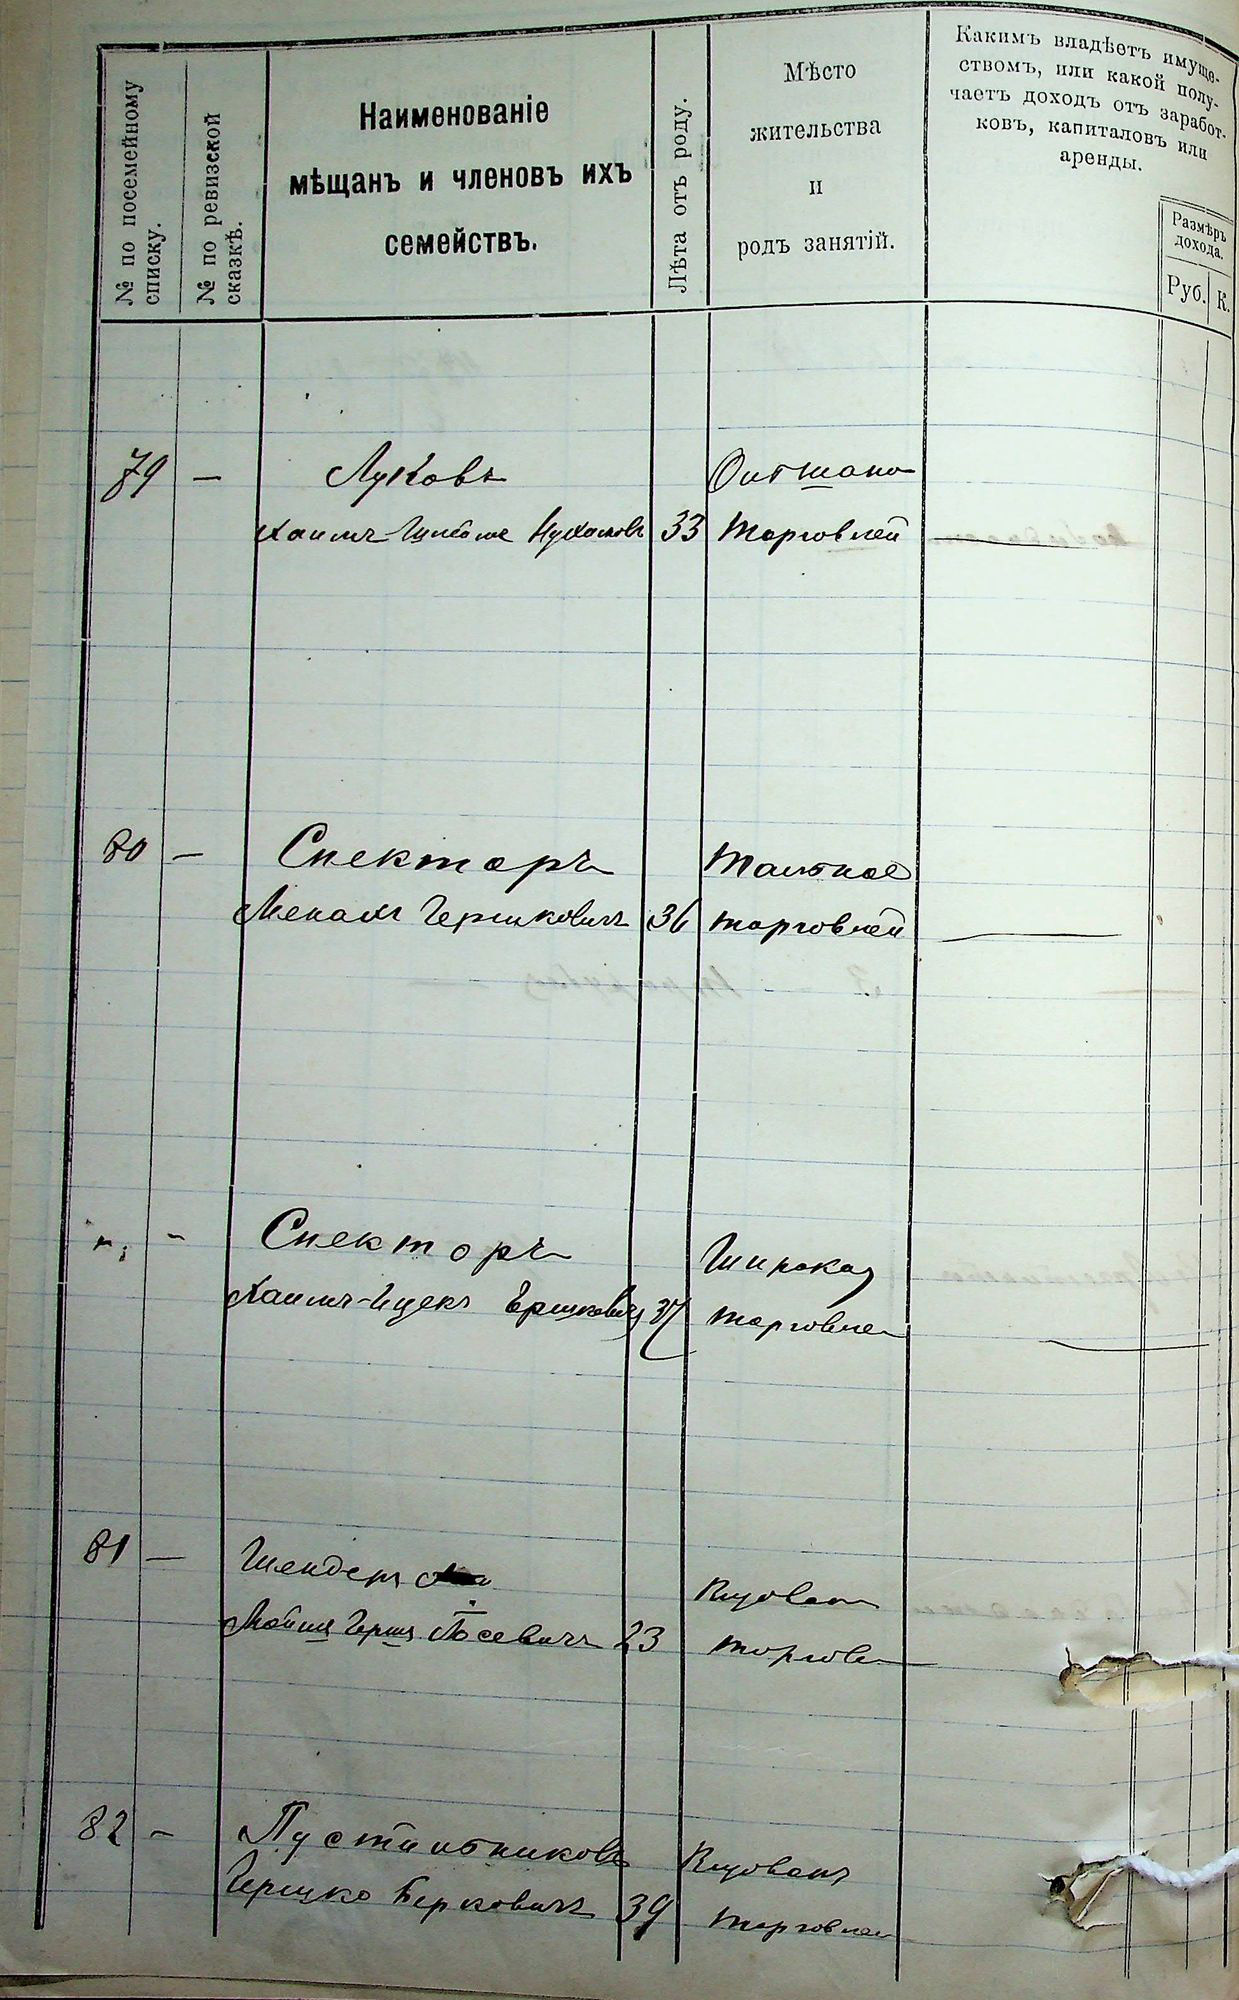 № по посемейному
списку.
№ по ревизской
сказкѣ.
Наименованіе
мѣщанъ и членовъ ихъ
семействъ.
Лѣта отъ роду.
Мѣсто
жительства
и
родъ занятій.
Какимъ владѣетъ имуще-
ствомъ, или какой полу-
чаетъ доходъ отъ заработ-
ковъ, капиталовъ или
аренды.
Размѣръ
дохода.
Руб. К.
79 — Луковъ
Хаимъ 33 Торговлей —
80 — Спекторъ
Менахъ Гершковичъ 36 торговлей —
— Спекторъ Широкая
Хаимъ-Ицекъ Ершковичъ 37 торговле —
81 — Шендеръ
Мойша Герша Іосевичъ 23 торговл
82 — Пустильниковъ
Гершко Берковичъ 39 торговлей